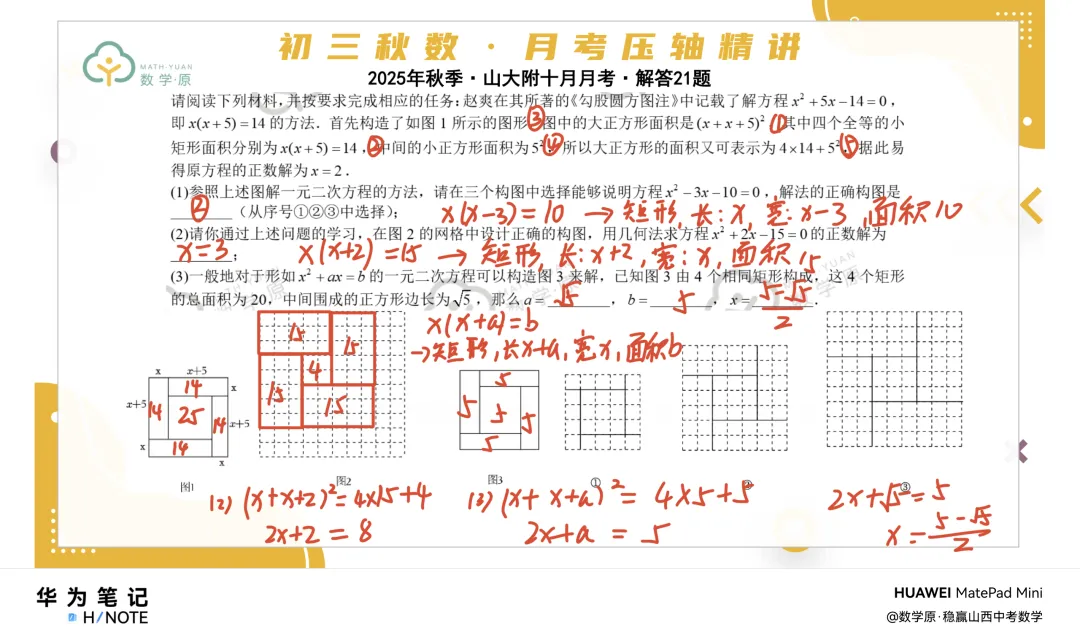 初三秋数·月考压轴精讲
MATH-YUAN
数学·原
2025年秋季·山大附十月月考·解答21题
请阅读下列材料,并按要求完成相应的任务:赵爽在其所著的《勾股圆方图注》中记载了解方程x²+5x-14=0,
即x(x+5)=14的方法.首先构造了如图1所示的图形③图中的大正方形面积是(x+x+5)²①其中四个全等的小
矩形面积分别为x(x+5)=14,②中间的小正方形面积为5²④所以大正方形的面积又可表示为4×14+5²,⑤据此易
得原方程的正数解为x=2.
(1)参照上述图解一元二次方程的方法,请在三个构图中选择能够说明方程x²-3x-10=0,解法的正确构图是
②(从序号①②③中选择);
x(x-3)=10 → 矩形,长:x,宽:x-3,面积10
(2)请你通过上述问题的学习,在图2的网格中设计正确的构图,用几何法求方程x²+2x-15=0的正数解为
x=3;
x(x+2)=15 → 矩形,长:x+2,宽:x,面积15
(3)一般地对于形如x²+ax=b的一元二次方程可以构造图3来解,已知图3由4个相同矩形构成,这4个矩形
的总面积为20,中间围成的正方形边长为√5,那么a=√5,b=5,x=(5-√5)/2.
x(x+a)=b
→矩形,长x+a,宽x,面积b
x x+5
14 x
x+5 14 25 14 x+5
x 14
x
图1
15 15
4
15 15
图2
5
5 5 5
5
图3
①
②
③
(2) (x+x+2)²=4×15+4
2x+2=8
(3) (x+x+a)²=4×5+5
2x+a=5
2x+√5=5
x=(5-√5)/2
华为笔记
HiNOTE
HUAWEI MatePad Mini
@数学原·稳赢山西中考数学